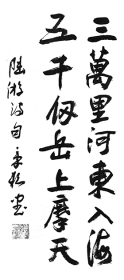 三萬里河東入海
五千仞岳上摩天
陆游诗句